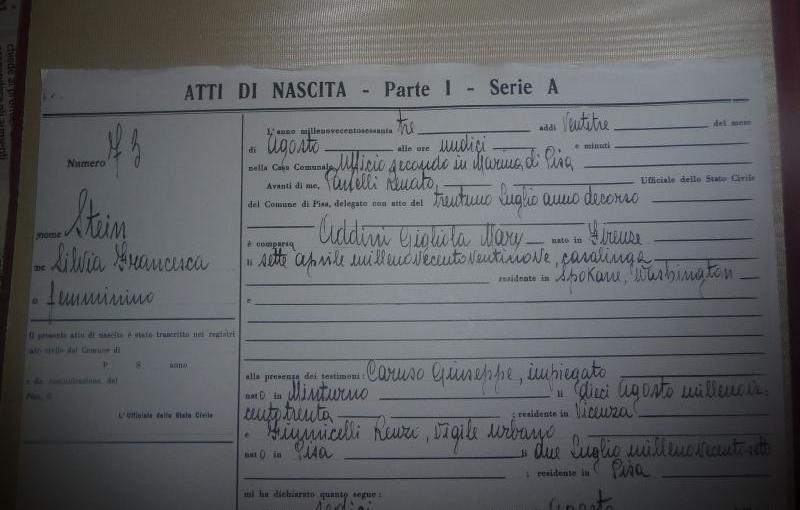 ATTI DI NASCITA - Parte I - Serie A
Numero 73
nome Stein
me Silvia Francesca
o femminino
Il presente atto di nascita è stato trascritto nei registri
ato civile del Comune di
P S anno
e da comunicazione del
L'Ufficiale dello Stato Civile
L'anno millenovecentosessanta tre addì Ventitre del mese
di Agosto alle ore undici e minuti
nella Casa Comunale Ufficio secondo in Marina di Pisa
Avanti di me, Renato Ufficiale dello Stato Civile
del Comune di Pisa, delegato con atto del trentuno Luglio anno decorso
è comparsa Addini Gigliola Mary nato in Firenze
li sette aprile millenovecentoventinove, casalinga
residente in Spokane, Washington
e
alla presenza dei testimoni: Caruso Giuseppe, impiegato
nato in Minturno li dieci Agosto millenove-
centotrenta ; residente in Vicenza
e Fiumicelli Renzo, Vigile urbano
nato in Pisa li due Luglio millenovecentosette
; residente in Pisa
mi ha dichiarato quanto segue:
sedici Agosto